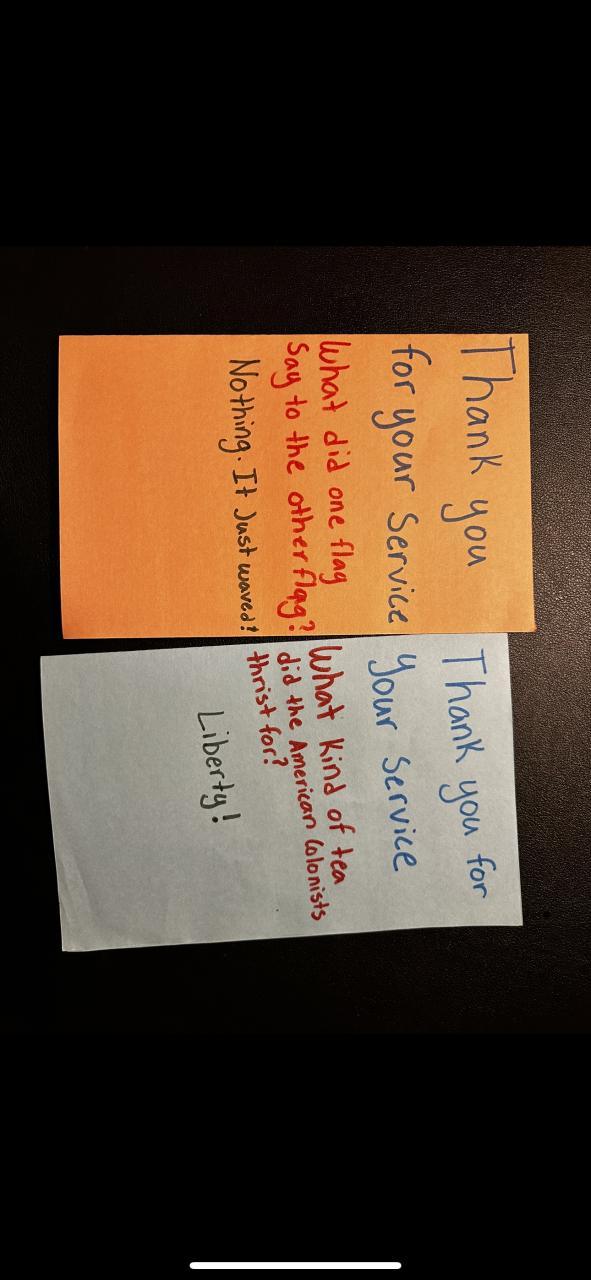 Thank you
for your Service
What did one flag
say to the other flag?
Nothing. It Just waved!
Thank you for
your Service
What kind of tea
did the American Colonists
thrist for?
Liberty!